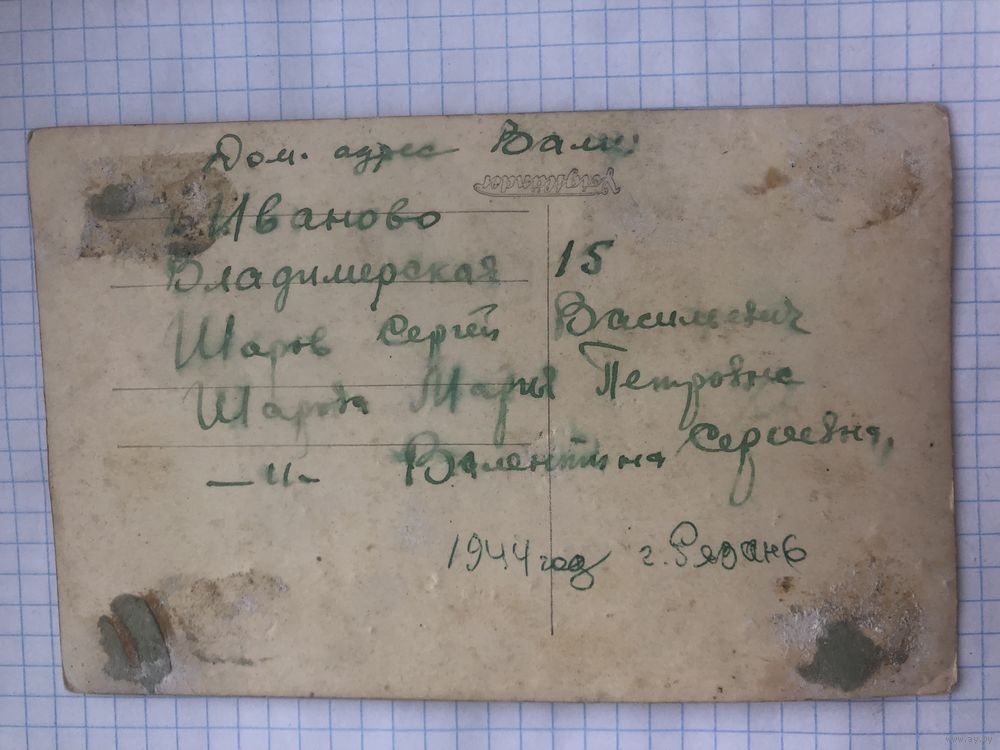 Дом. адрес Вали:
Voigtländer
г. Иваново
Владимерская 15
Шаров Сергей Васильевич
Шарова Мария Петровна
—"— Валентина Сергеевна,
1944 год г. Рязань
www.ay.by